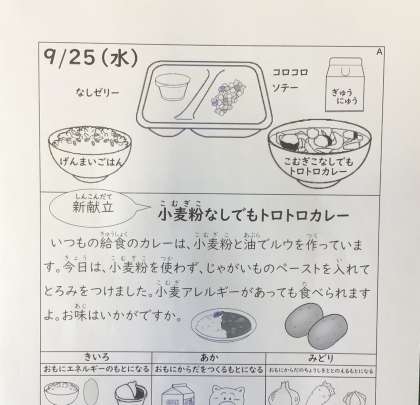 9/25(水)
A
なしゼリー
コロコロ
ソテー
ぎゅう
にゅう
げんまいごはん
こむぎこなしでも
トロトロカレー
しんこんだて
新献立
こむぎこ
小麦粉なしでもトロトロカレー
きゅうしょく こむぎこ あぶら つく
いつもの給食のカレーは、小麦粉と油でルウを作っていま
きょう こむぎこ つか い
す。今日は、小麦粉を使わず、じゃがいものペーストを入れて
こむぎ た
とろみをつけました。小麦アレルギーがあっても食べられます
あじ
よ。お味はいかがですか。
きいろ
あか
みどり
おもにエネルギーのもとになる
おもにからだをつくるもとになる
おもにからだのちょうしをととのえるもとになる